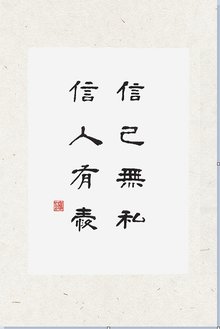 信己無私
信人有